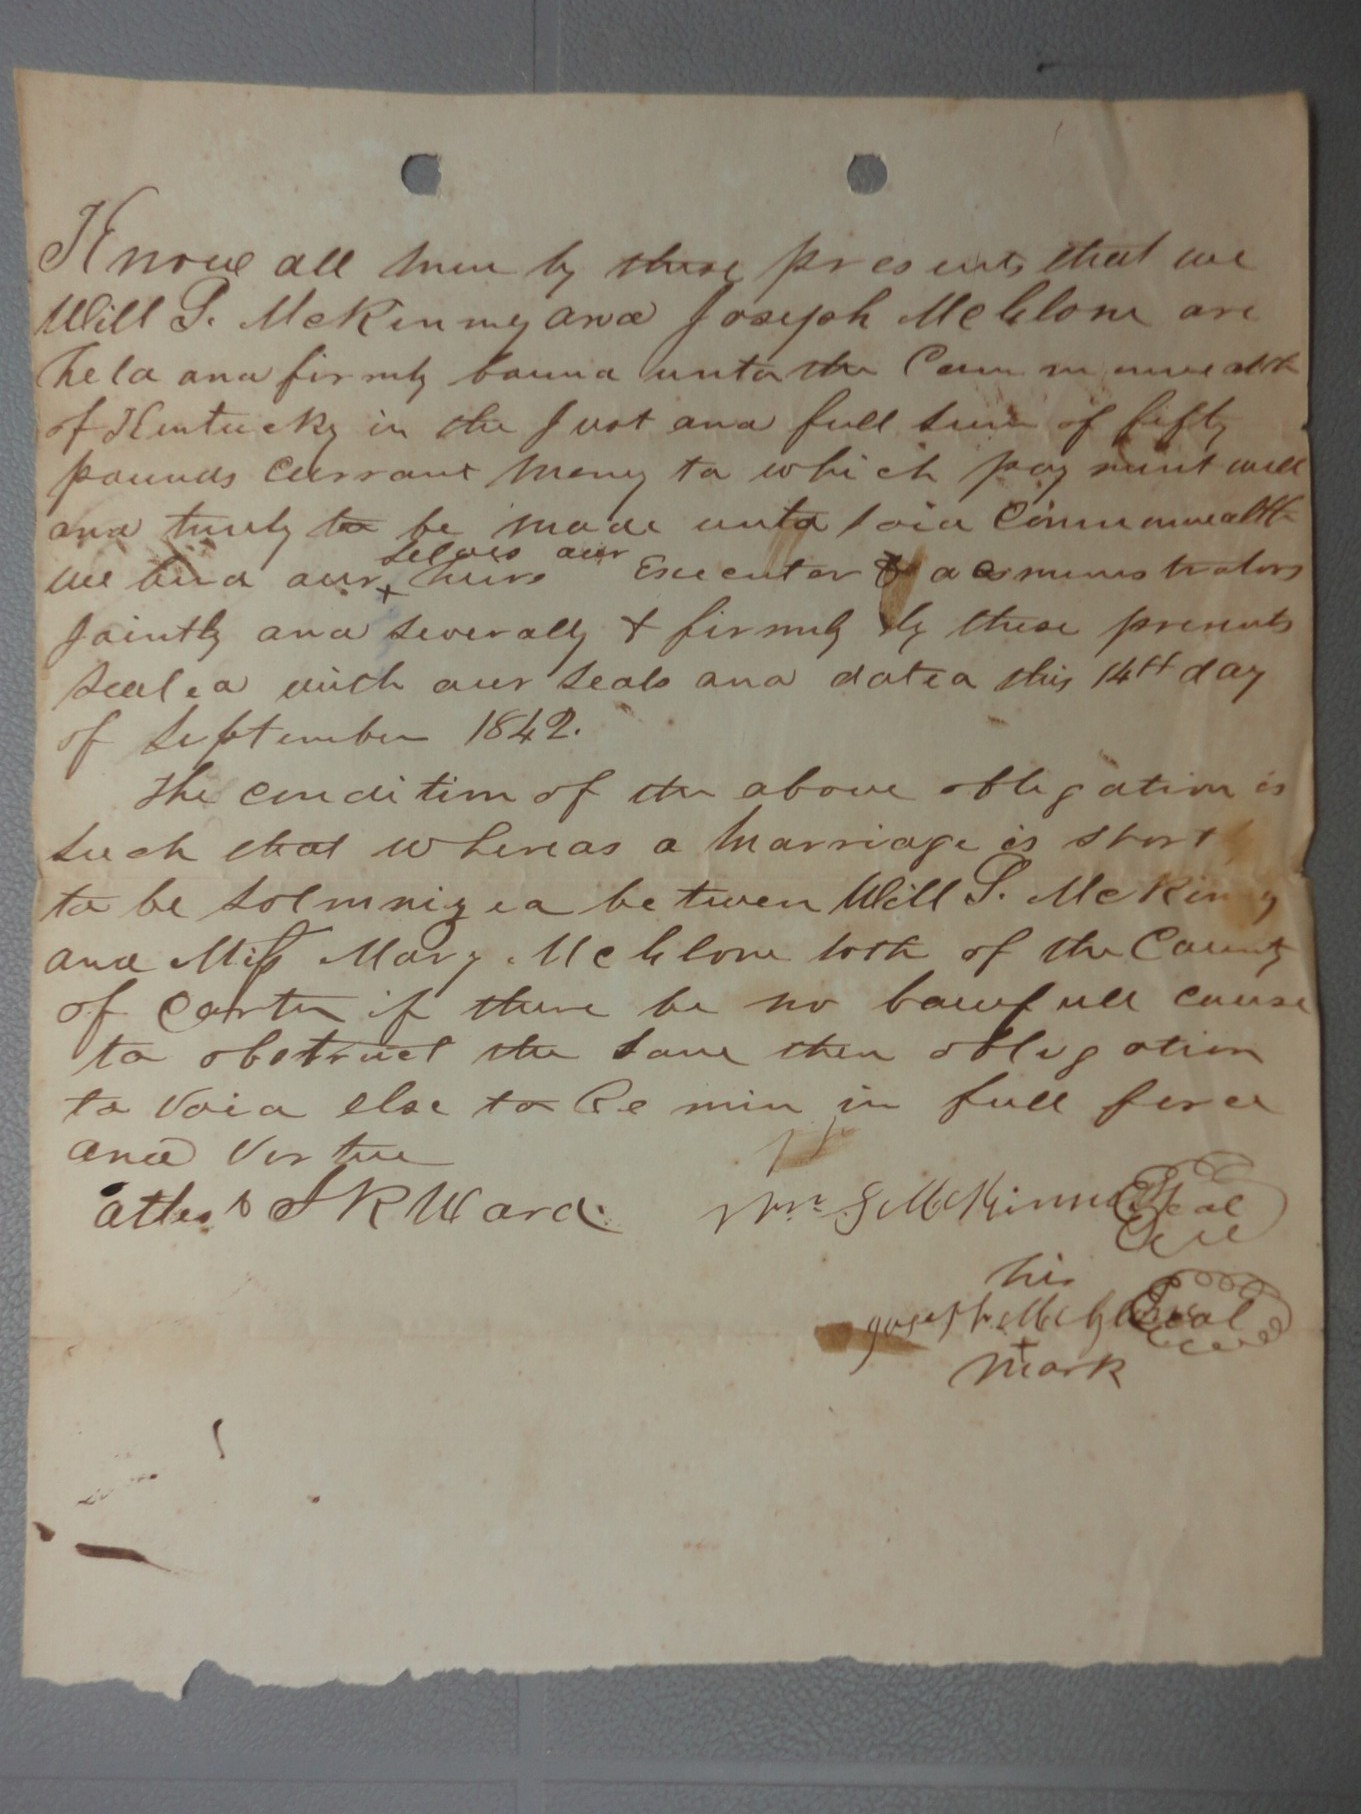 Know all men by these presents, that we
Will S. McKinny and Joseph McGlone are
held and firmly bound unto the Commonwealth
of Kentucky in the Just and full sum of fifty
pounds Currant Money to which payment well
and truly to be made unto said Commonwealth
selves our
we bind our + heirs Executor & administrators
Jointly and severally & firmly by these presents
sealed with our seals and dated this 14th day
of September 1842.
The condition of the above obligation is
such that whereas a Marriage is short
to be solmnized between Will S. McKinny
and Miss Mary McGlone both of the County
of Carter if there be no lawfull cause
to obstruct the same then obligation
to Void else to Remin in full force
and Virtue
attest J R Ward
Wm. S McKinney Seal
his
Joseph McGlone Seal
+
Mark